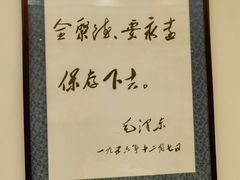 全聚德、要永远
保存下去。
毛泽东
一九五六年十二月七日